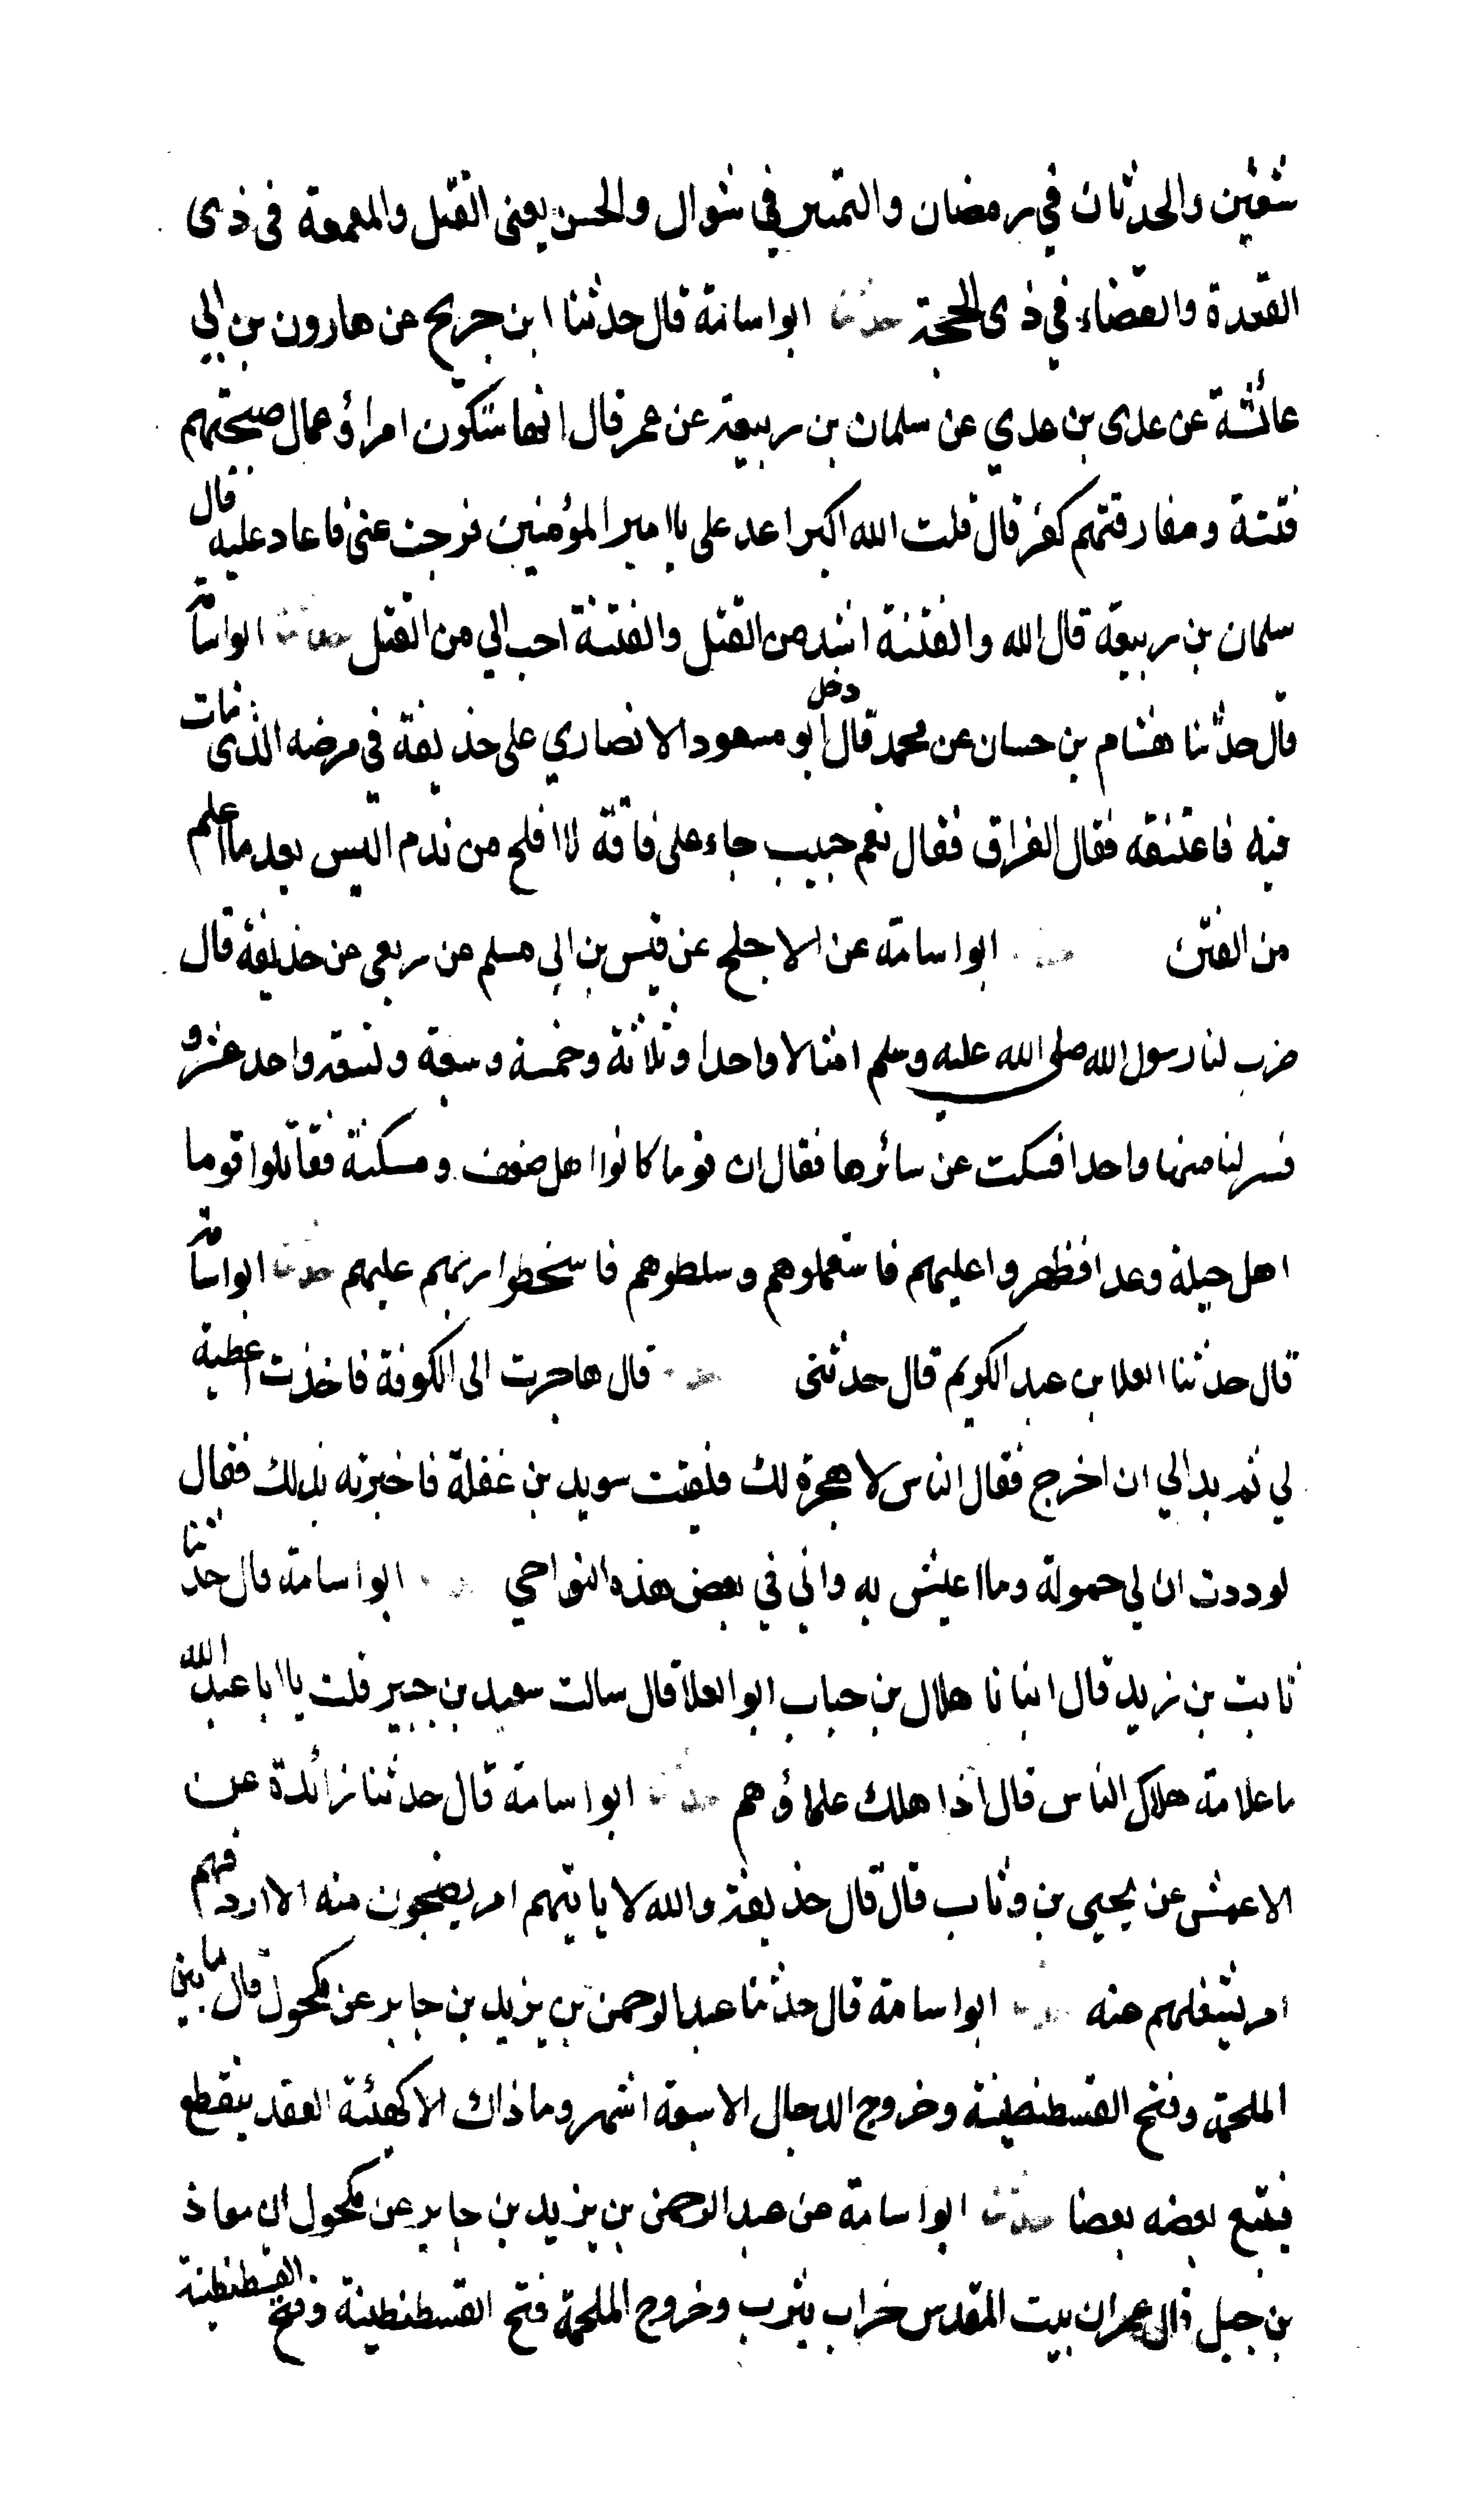 شعبن والحدثان في رمضان والتمير في شوال والحس يعنى القتل والمعمعة فى ذى
القعدة والقضاء في ذى الحجة حدثنا ابو اسامة قال حدثنا ابن جريج عن هارون بن ابي
عائشة عن عدى بن عدي عن سلمان بن ربيعة عن عمر قال انها ستكون امراؤ عمال صحبتهم
فتنة ومفارقتهم كفر قال قلت الله اكبر اعد على يا امير المؤمنين فرجت عنى فاعاد عليه قال
سلمان بن ربيعة قال الله والفتنة اشد من القتل والفتنة احب الي من القتل حدثنا ابو اسامة
قال حدثنا هشام بن حسان عن محمد قال دخل ابو مسعود الانصاري على حذيفة في مرضه الذى مات
فيه فاعتنقه فقال الفراق فقال نعم حبيب جاء على فاقة لا افلح من ندم اليس بعد ما اعلم
من الفتن ابو اسامة عن الاجلح عن قيس بن ابي مسلم عن ربعى عن حذيفة قال
ضرب لنا رسول الله صلى الله عليه وسلم امثالا واحدا وثلاثة وخمسة وسبعة وتسعة واحد عشر و
فسر لنا منها واحدا فسكت عن سائرها فقال ان قوما كانوا اهل ضعف ومسكنة فقاتلوا قوما
اهل حيلة وعدا فظهروا عليهم فاستعملوهم وسلطوهم فاسخطوا ربهم عليهم حدثنا ابو اسامة
قال حدثنا العلا بن عبد الكريم قال حدثنى قال هاجرت الى الكوفة فاخذت اعطية
لي ثم بدا لي ان اخرج فقال الناس لا هجرة لك فلقيت سويد بن غفلة فاخبرته بذلك فقال
لوددت ان لي حمولة وما اعيش به واني في بعض هذه النواحي ابو اسامة قال حدثنا
ثابت بن زيد قال انبانا هلال بن خباب ابو العلا قال سالت سعيد بن جبير قلت يا ابا عبد الله
ما علامة هلاك الناس قال اذا هلك علماؤهم حدثنا ابو اسامة قال حدثنا زائدة عن
الاعمش عن يحيى بن وثاب قال قال حذيفة والله لا ياتيهم امر يضجون منه الا اردفهم
امر يشغلهم عنه حدثنا ابو اسامة قال حدثنا عبد الرحمن بن يزيد بن جابر عن مكحول قال ما بين
الملحمة وفتح القسطنطينة وخروج الدجال الا سبعة اشهر وما ذاك الا كهئية العقد ينقطع
فيتبع بعضه بعضا حدثنا ابو اسامة عن عبد الرحمن بن يزيد بن جابر عن مكحول ان معاذ
بن جبل قال عمران بيت المقدس خراب يثرب وخروج الملحمة فتح القسطنطينة وفتح القسطنطينة